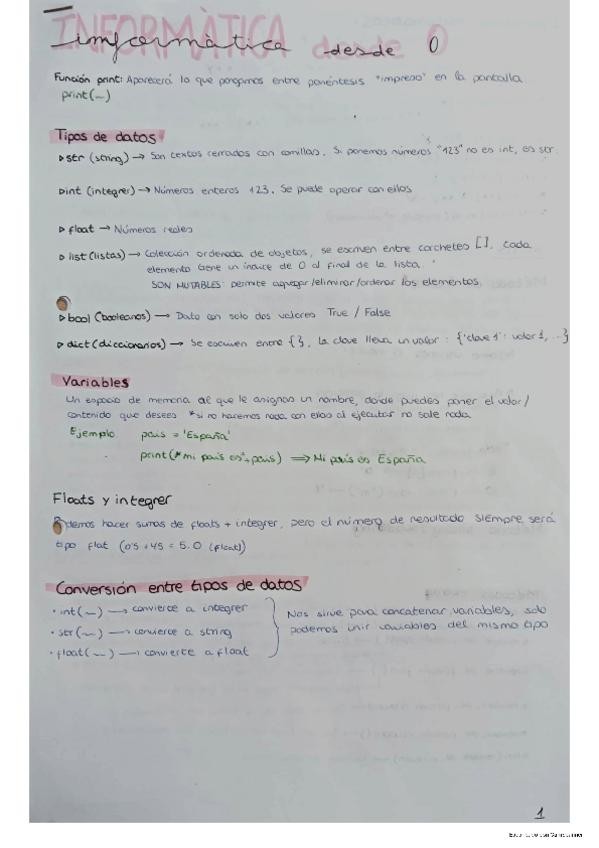 INFORMÀTICA desde 0
informàtica desde 0
Función print: Aparecerá lo que pongamos entre paréntesis "impreso" en la pantalla
print(~)
Tipos de datos
▷ str (string) → Son textos cerrados con comillas. Si ponemos números "123" no es int, es str.
▷ int (integrer) → Números enteros 123. Se puede operar con ellos
▷ float → Números reales
▷ list (listas) → Colección ordenada de objetos, se escriben entre corchetes [], cada
elemento tiene un índice de 0 al final de la lista.
SON MUTABLES: permite agregar/eliminar/ordenar los elementos.
▷ bool (booleanos) → Dato con solo dos valores True / False
▷ dict (diccionarios) → Se escriben entre { }. La clave lleva un valor : {'clave 1': valor 1, ...}
Variables
Un espacio de memoria al que le asignas un nombre, donde puedes poner el valor/
contenido que desees *si no hacemos nada con ellos al ejecutar no sale nada
Ejemplo pais = 'España'
print("mi país es"+país) ⟹ Mi país es España
Floats y integrer
Podemos hacer sumas de floats + integrer, pero el número de resultado SIEMPRE será
tipo flat (0'5 + 4'5 = 5.0 (float))
Conversión entre tipos de datos
• int(~) → convierte a integrer
• str(~) → convierte a string
• float(~) → convierte a float
Nos sirve para concatenar variables, solo
podemos unir variables del mismo tipo
1